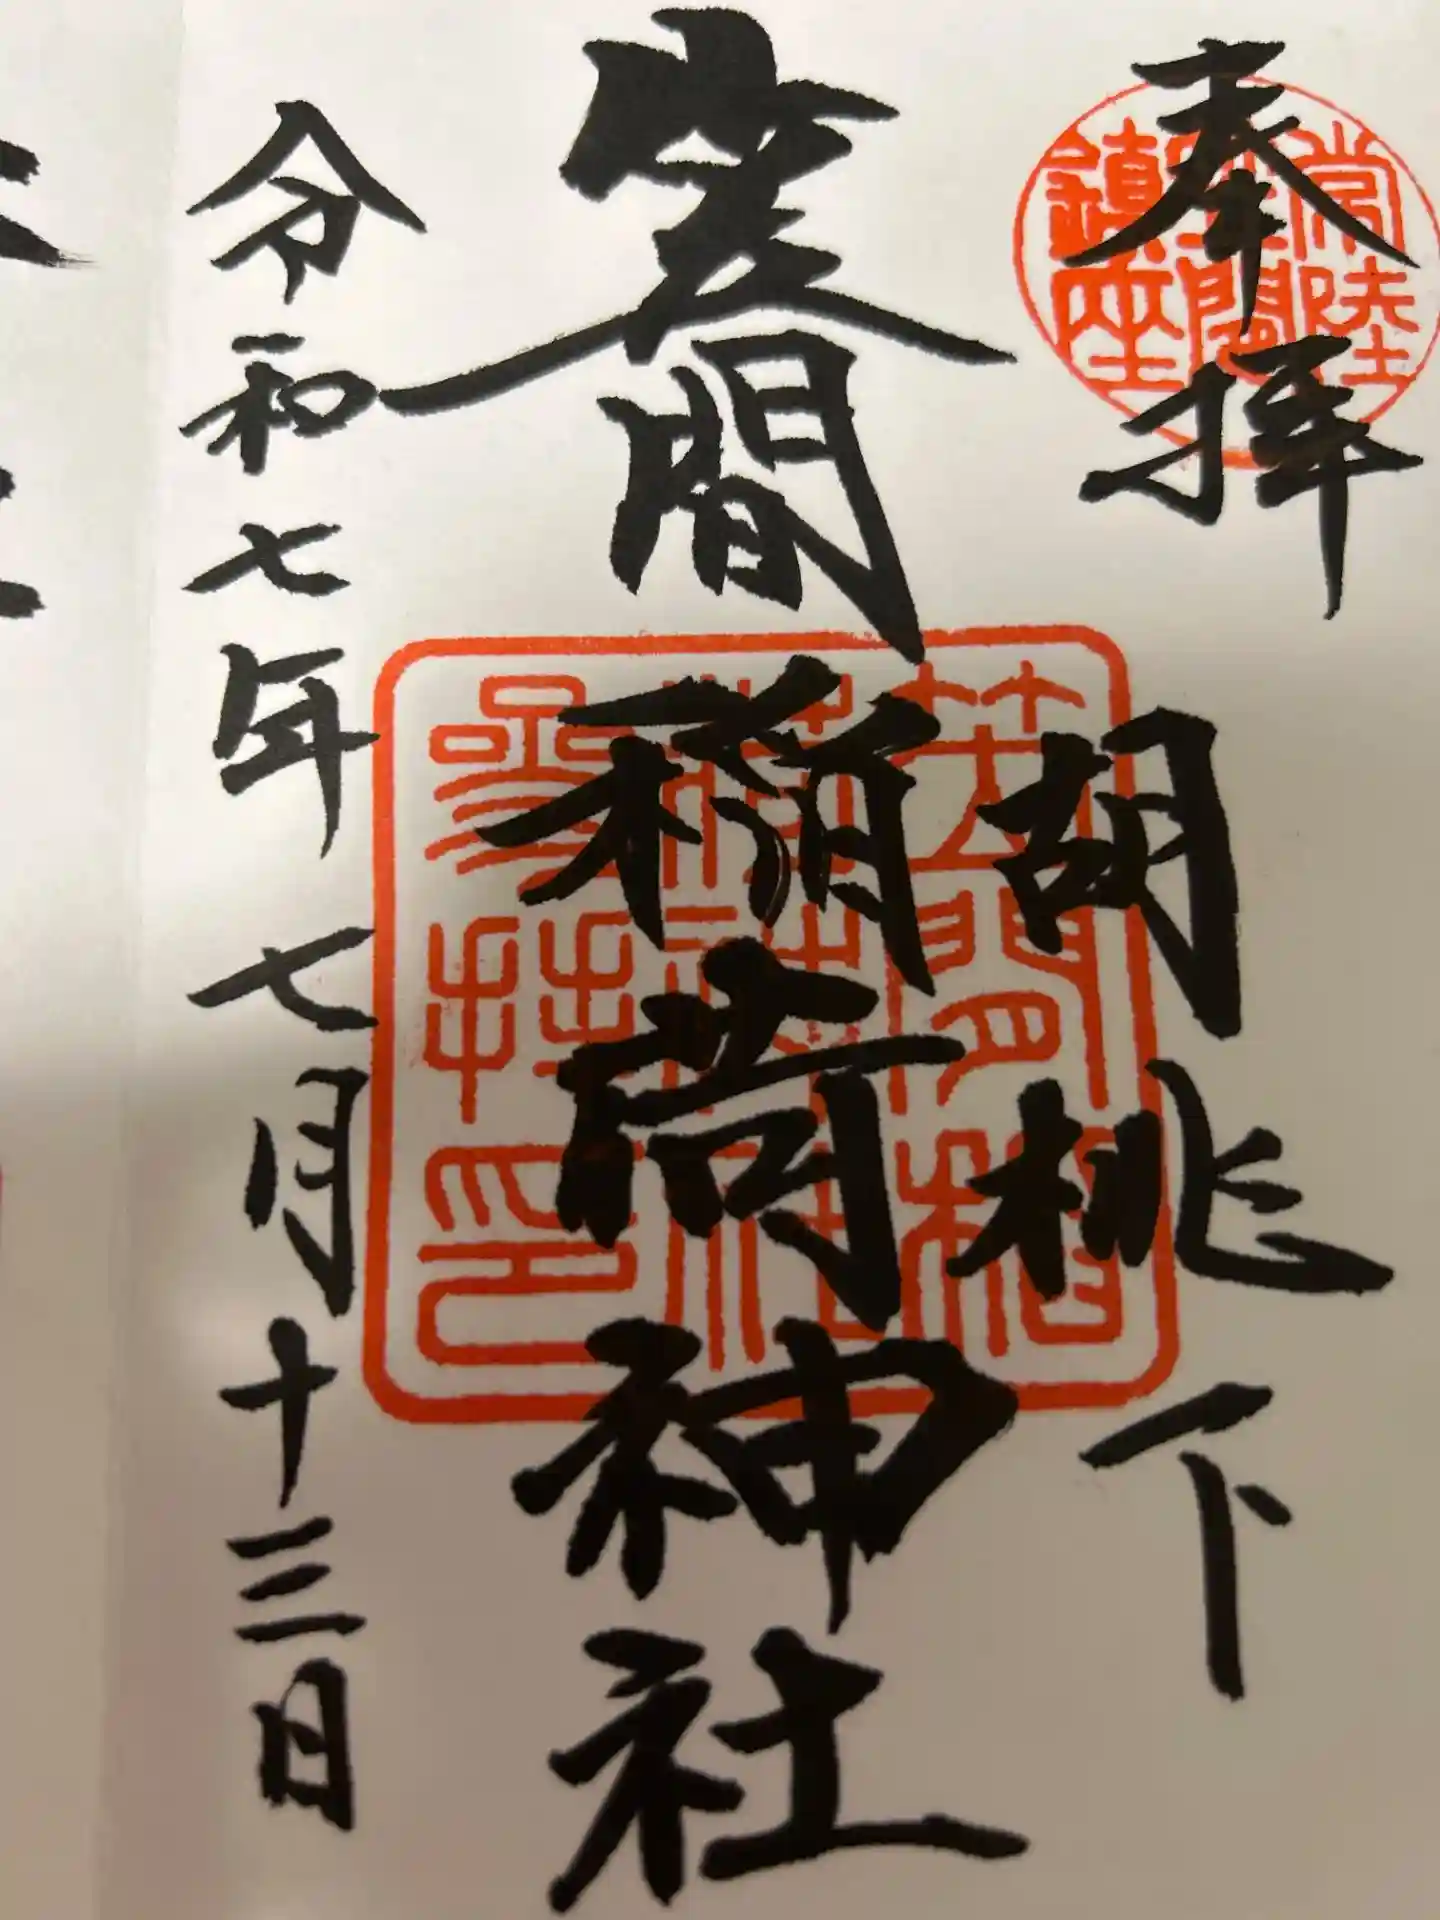 奉拝
胡桃下
笠間稲荷神社
令和七年七月十三日
常陸
笠間
鎮座
笠間稲
荷神社
参拝印